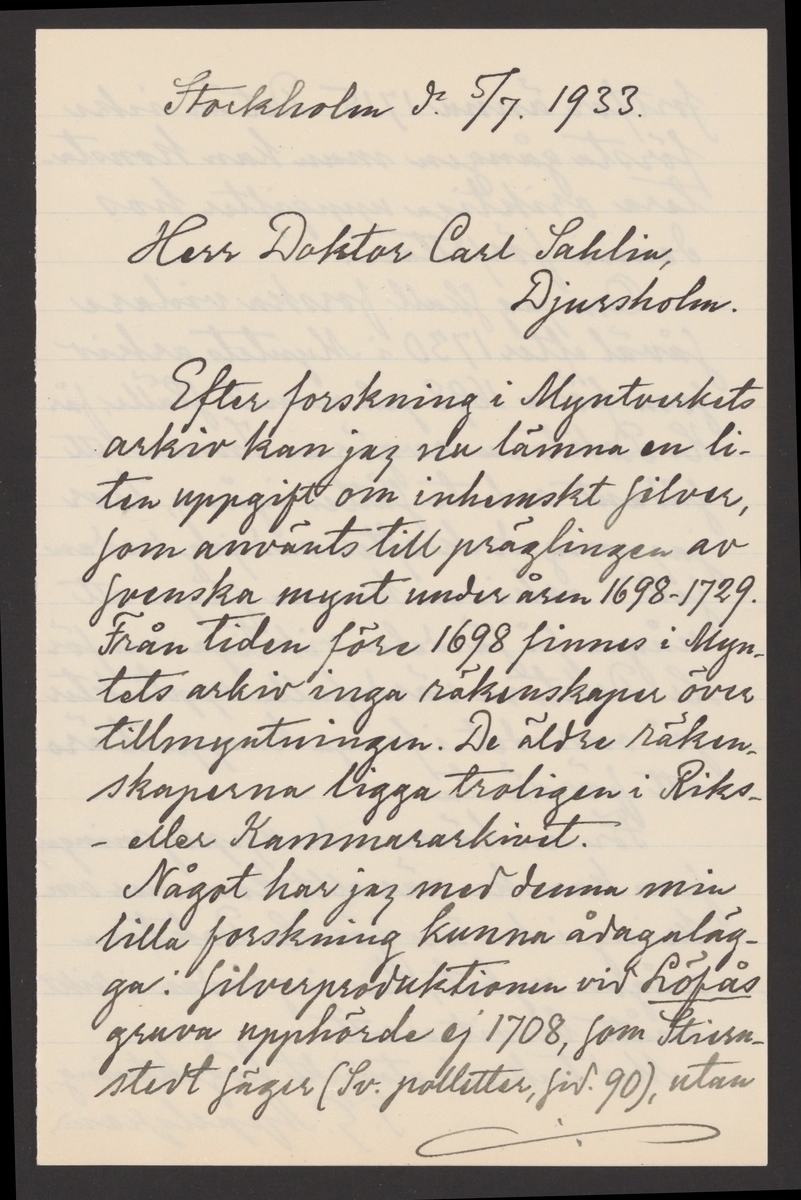 Stockholm d. 5/7. 1933.
Herr Doktor Carl Sahlin,
Djursholm.
Efter forskning i Myntverkets
arkiv kan jag nu lämna en li-
ten uppgift om inhemskt silver,
som använts till präglingen av
svenska mynt under åren 1698-1729.
Från tiden före 1698 finnes i Myn-
tets arkiv inga räkenskaper över
tillmyntningen. De äldre räken-
skaperna ligga troligen i Riks-
- eller Kammararkivet.
Något har jag med denna min
lilla forskning kunna ådagaläg-
ga: silverproduktionen vid Löfås
gruva upphörde ej 1708, som Stiern-
stedt säger (Sv. polletter, sid. 90), utan